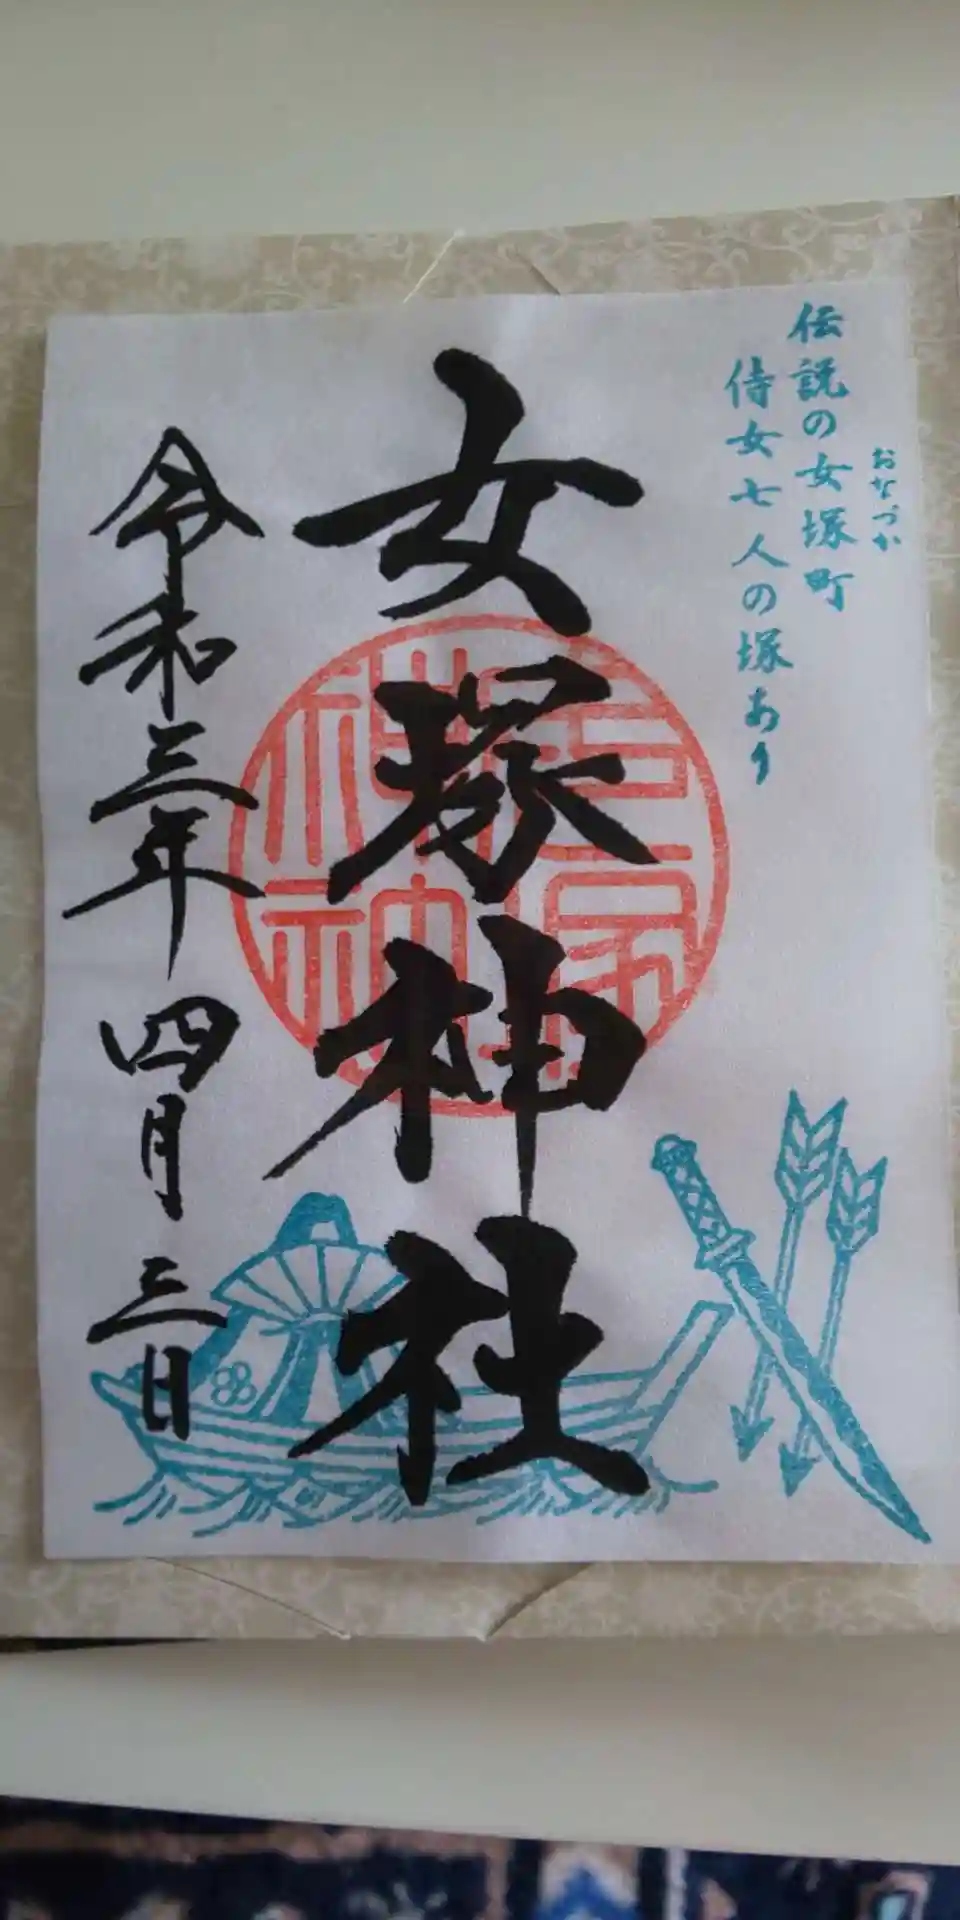 おなづか
伝説の女塚町
侍女七人の塚あり
女塚神社
令和三年四月三日